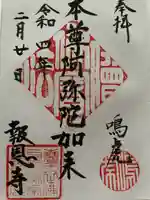 奉拝
鳴虎
本尊阿弥陀如来
報恩寺
令和四年
二月廿日